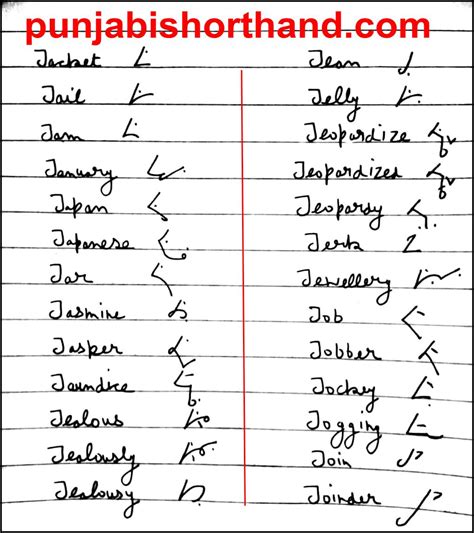 punjabishorthand.com
Jacket
Jail
Jam
January
Japan
Japanese
Jar
Jasmine
Jasper
Jaundice
Jealous
Jealously
Jealousy
Jean
Jelly
Jeopardize
Jeopardized
Jeopardy
Jerk
Jewellery
Job
Jobber
Jockey
Jogging
Join
Joinder